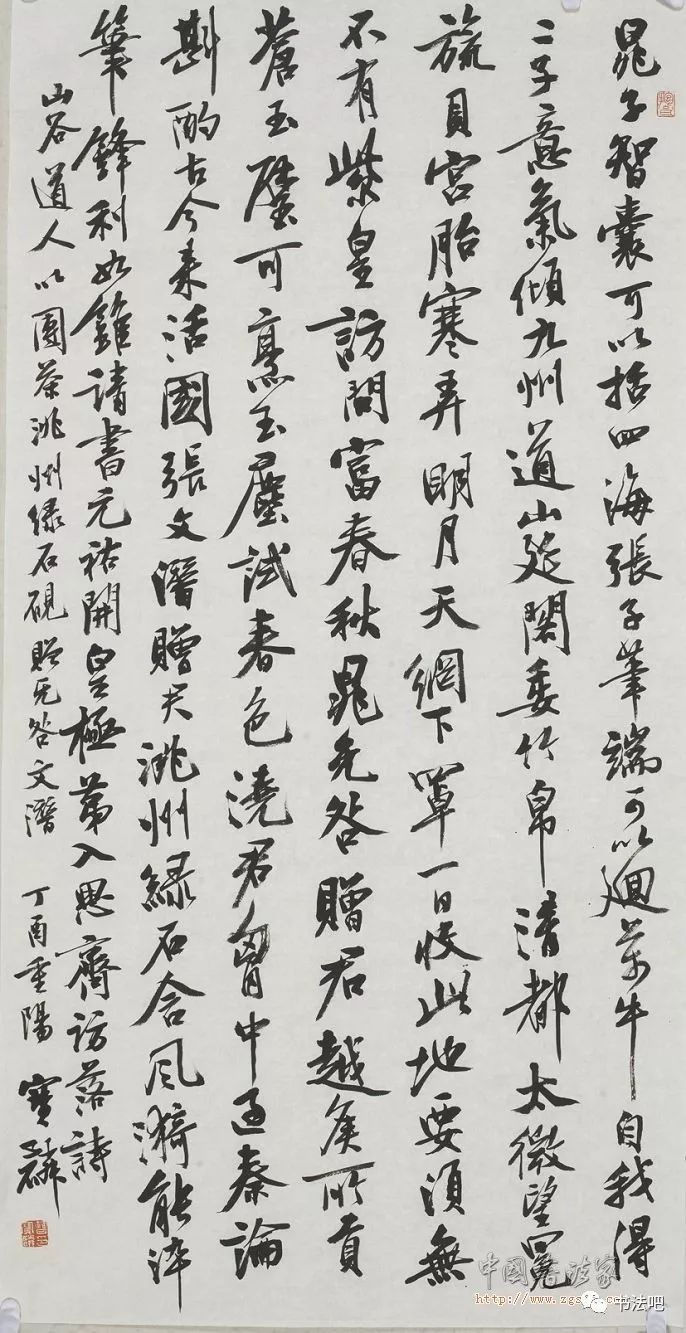 晁子智囊可以括四海張子筆端可以迴萬牛自我得
二子意氣傾九州道山延閣委竹帛清都太微望冕
旒貝宮胎寒弄明月天網下罩一日收此地要須無
不有紫皇訪問富春秋晁无咎贈君越侯所貢
蒼玉璧可烹玉塵試春色澆君胷中過秦論
斟酌古今來活國張文潛贈君洮州綠石含風漪能淬
筆鋒利如錐請書元祐開皇極第入思齊訪落詩
山谷道人以團茶洮州绿石硯贈无咎文潛 丁酉重陽 寶麟
中國書法家
书法吧